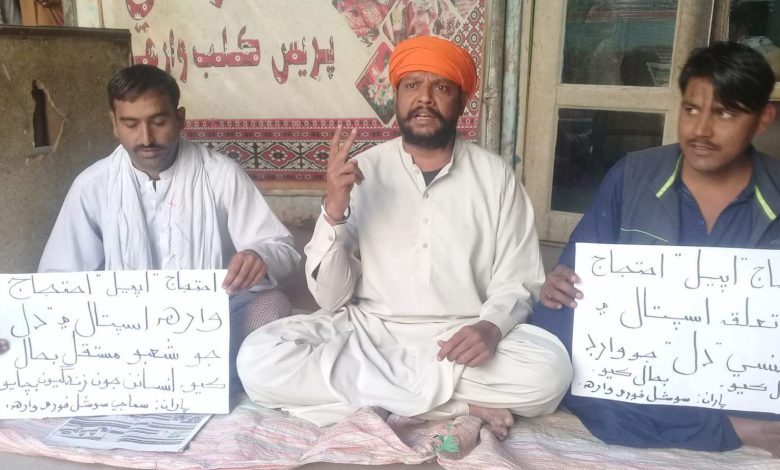 پريس ڪلب وارهه
احتجاج "اپيل" احتجاج
وارهه اسپتال ۾ دل
جو شعبو مستقل بحال
ڪيو. انسانن جون زندگيون بچايو
پاران: سماجي سوشل فورم وارهه.
اج "اپيل" احتجاج
تعلقه اسپتال ۾
"دل" جو وارڊ
بحال ڪيو.
پاران: سوشل فورم وارهه.